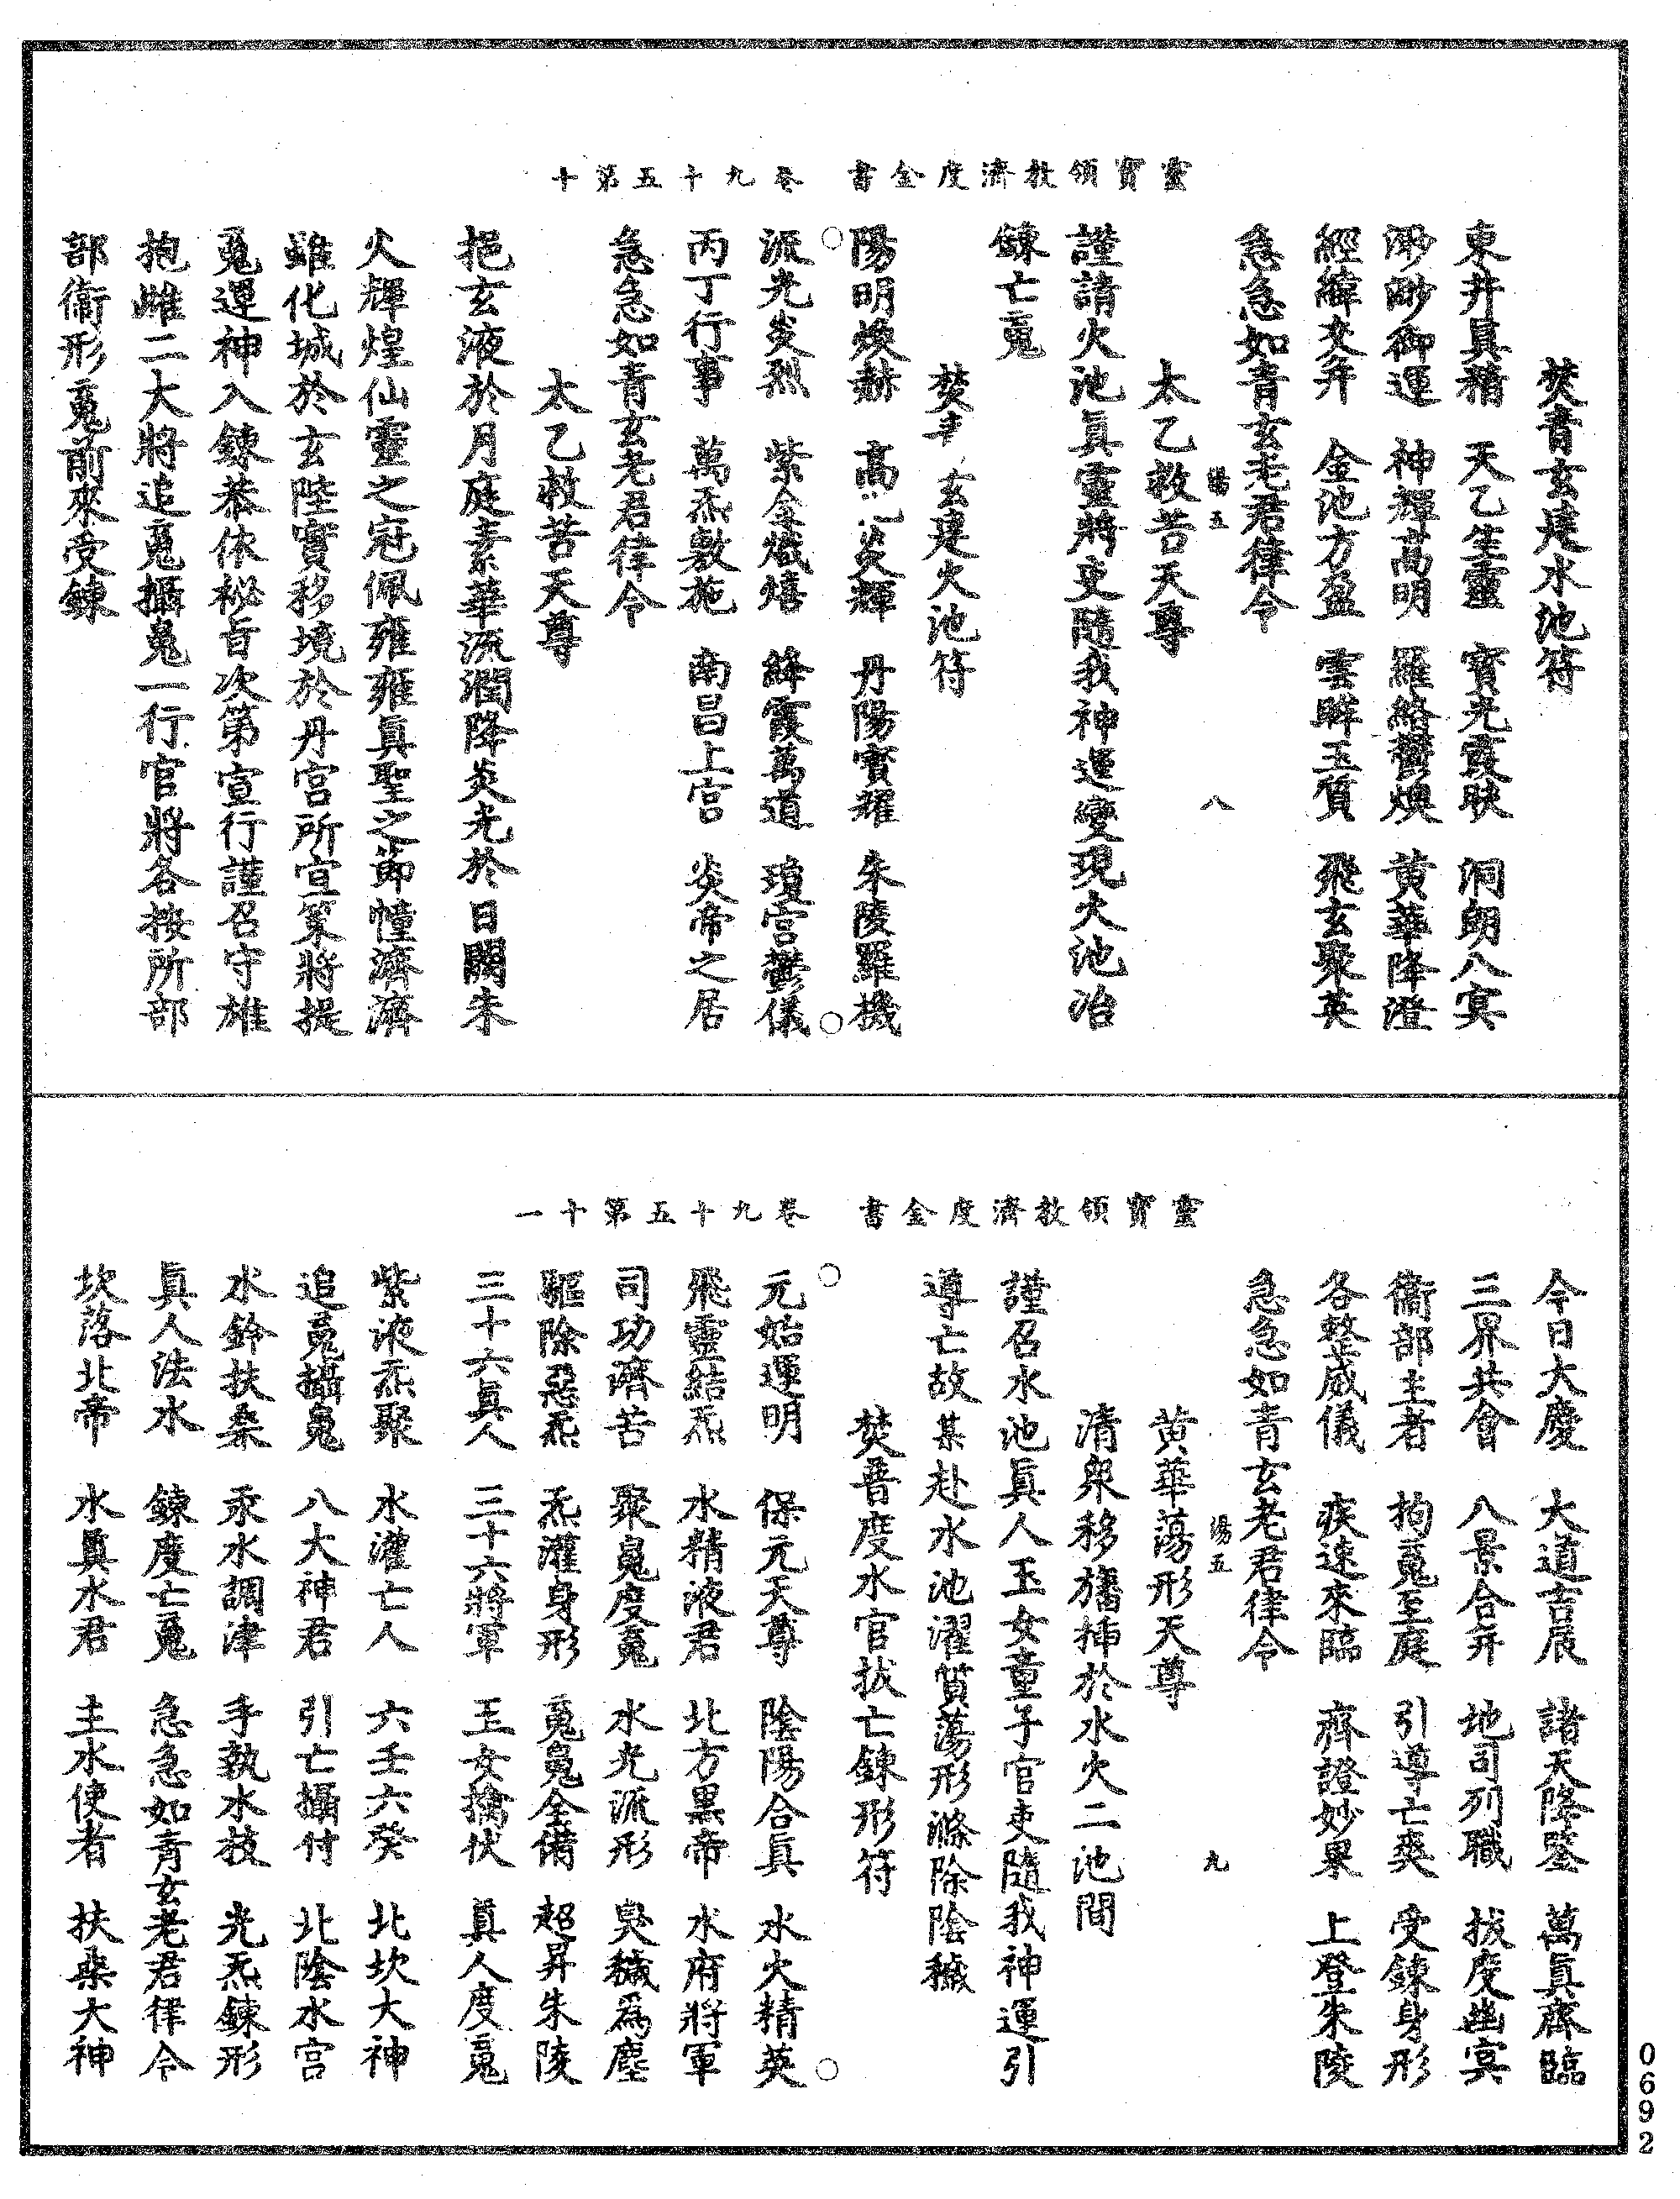 靈寶領教濟度金書　卷九十五第十
焚青玄建水池符
東井眞精　天乙生靈　寶光霞映　洞朗八冥
渺渺御運　神輝高明　羅絡鬱煥　黃華降澄
經緯交并　金池方盈　雲暉玉質　飛玄聚英
急急如青玄老君律令
湯五　八
太乙救苦天尊
謹請火池眞靈將吏隨我神運變現火池冶
鍊亡䰟
焚　玄建火池符
陽明煥赫　高　炎輝　丹陽寶耀　朱陵羅機
派光炎烈　紫金熾熺　絳霞萬道　瓊宮鬱儀
丙丁行事　萬炁敷施　南昌上宮　炎帝之居
急急如青玄老君律令
太乙救苦天尊
挹玄液於月庭素華流潤降炎光於日闕朱
火輝煌仙靈之冠佩雍雍眞聖之節幢濟濟
雖化城於玄陸實移境於丹宮所宣箓將提
䰟運神入鍊恭依祕旨次第宣行謹召守雄
抱雌二大將追䰟攝䰟一行官將各按所部
部衞形䰟前來受鍊
靈寶領教濟度金書　卷九十五第十一
今日大慶　大道吉辰　諸天降鑒　萬眞齊臨
三界共會　八景合并　地司列職　拔度幽冥
衞部主者　拘䰟至庭　引導亡爽　受鍊身形
各整威儀　疾速來臨　齊證妙果　上登朱陵
急急如青玄老君律令
湯五　九
黃華蕩形天尊
清衆移旛插於水火二池間
謹召水池眞人玉女童子官吏隨我神運引
導亡故某赴水池濯質蕩形滌除陰穢
焚普度水官拔亡鍊形符
元始運明　保元天尊　陰陽合眞　水火精英
飛靈結炁　水精液君　北方黑帝　水府將軍
司功濟苦　聚䰟度䰟　水光流形　臭穢爲塵
驅除惡炁　炁灌身形　䰟䰟全備　超昇朱陵
三十六眞人　三十六將軍　玉女擒伏　眞人度䰟
紫液炁聚　水灌亡人　六壬六癸　北坎大神
追䰟攝䰟　八大神君　引亡攝付　北陰水宮
水鈴扶桑　汞水調津　手執水技　光炁鍊形
眞人法水　鍊度亡䰟　急急如青玄老君律令
坎落北帝　水眞水君　主水使者　扶桑大神
0692